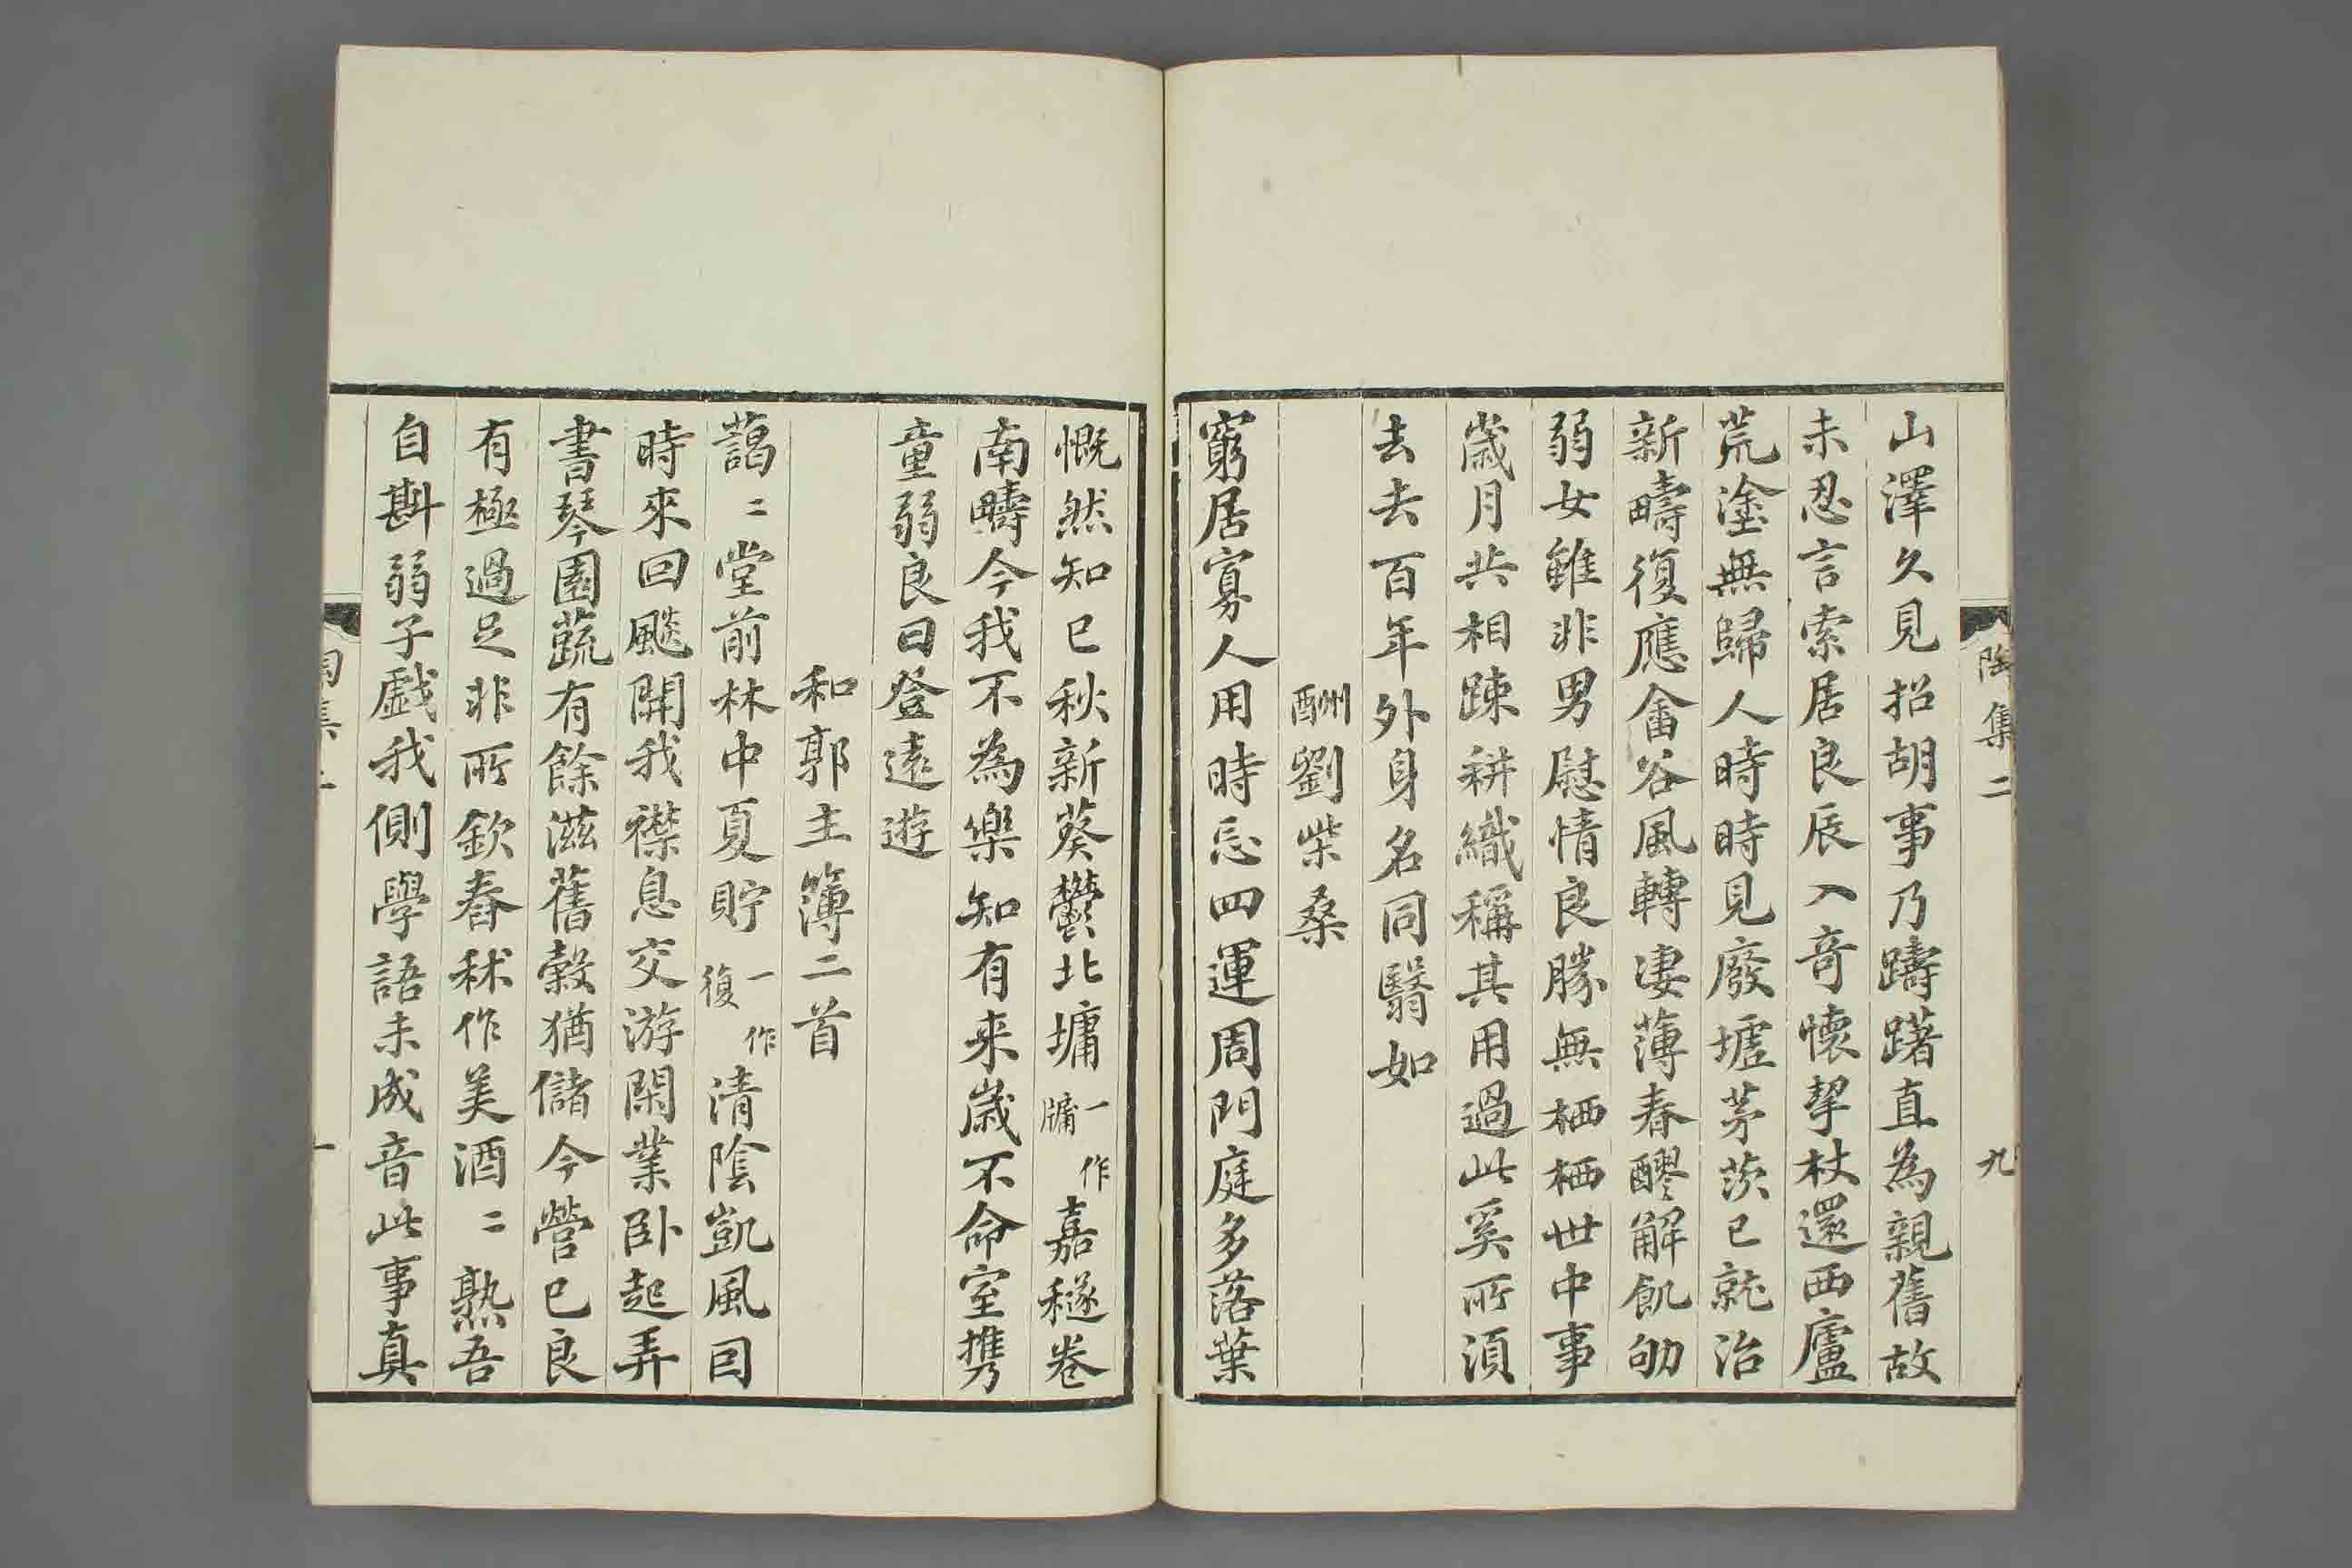 陶集二 九
山澤久見招胡事乃躊躇直為親舊故
未忍言索居良辰入奇懷挈杖還西廬
荒塗無歸人時時見廢墟茅茨已就治
新疇復應畬谷風轉淒薄春醪解飢劬
弱女雖非男慰情良勝無栖栖世中事
歲月共相踈耕織稱其用過此奚所須
去去百年外身名同翳如
酬劉柴桑
窮居寡人用時忘四運周門庭多落葉
慨然知已秋新葵鬱北墉一作牗嘉穟卷
南疇今我不為樂知有来歲不命室携
童弱良日登遠遊
和郭主簿二首
藹〻堂前林中夏貯一作復清陰凱風因
時來回飈開我襟息交游閑業卧起弄
書琴園蔬有餘滋舊穀猶儲今營已良
有極過足非所欽舂秫作美酒〻熟吾
自斟弱子戯我側學語未成音此事真